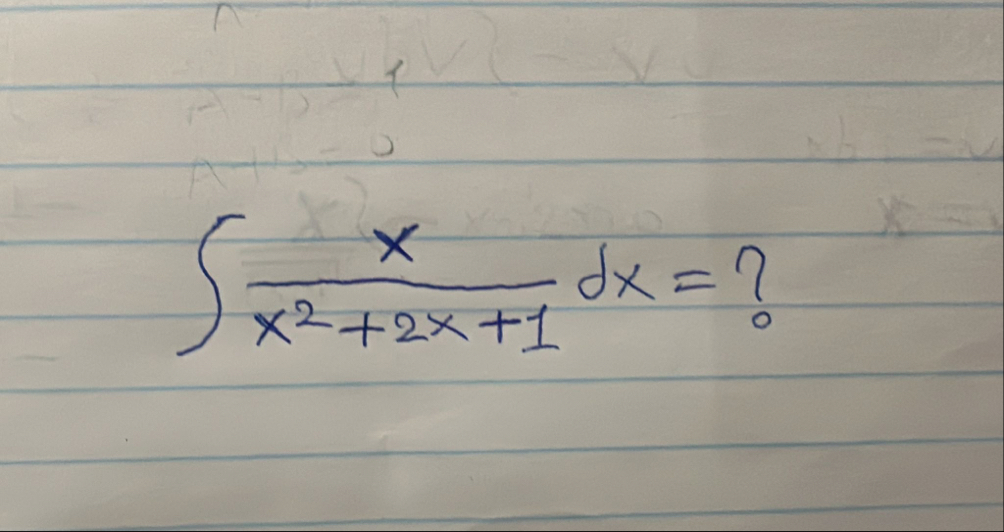 ∫ x / (x² + 2x + 1) dx = ?